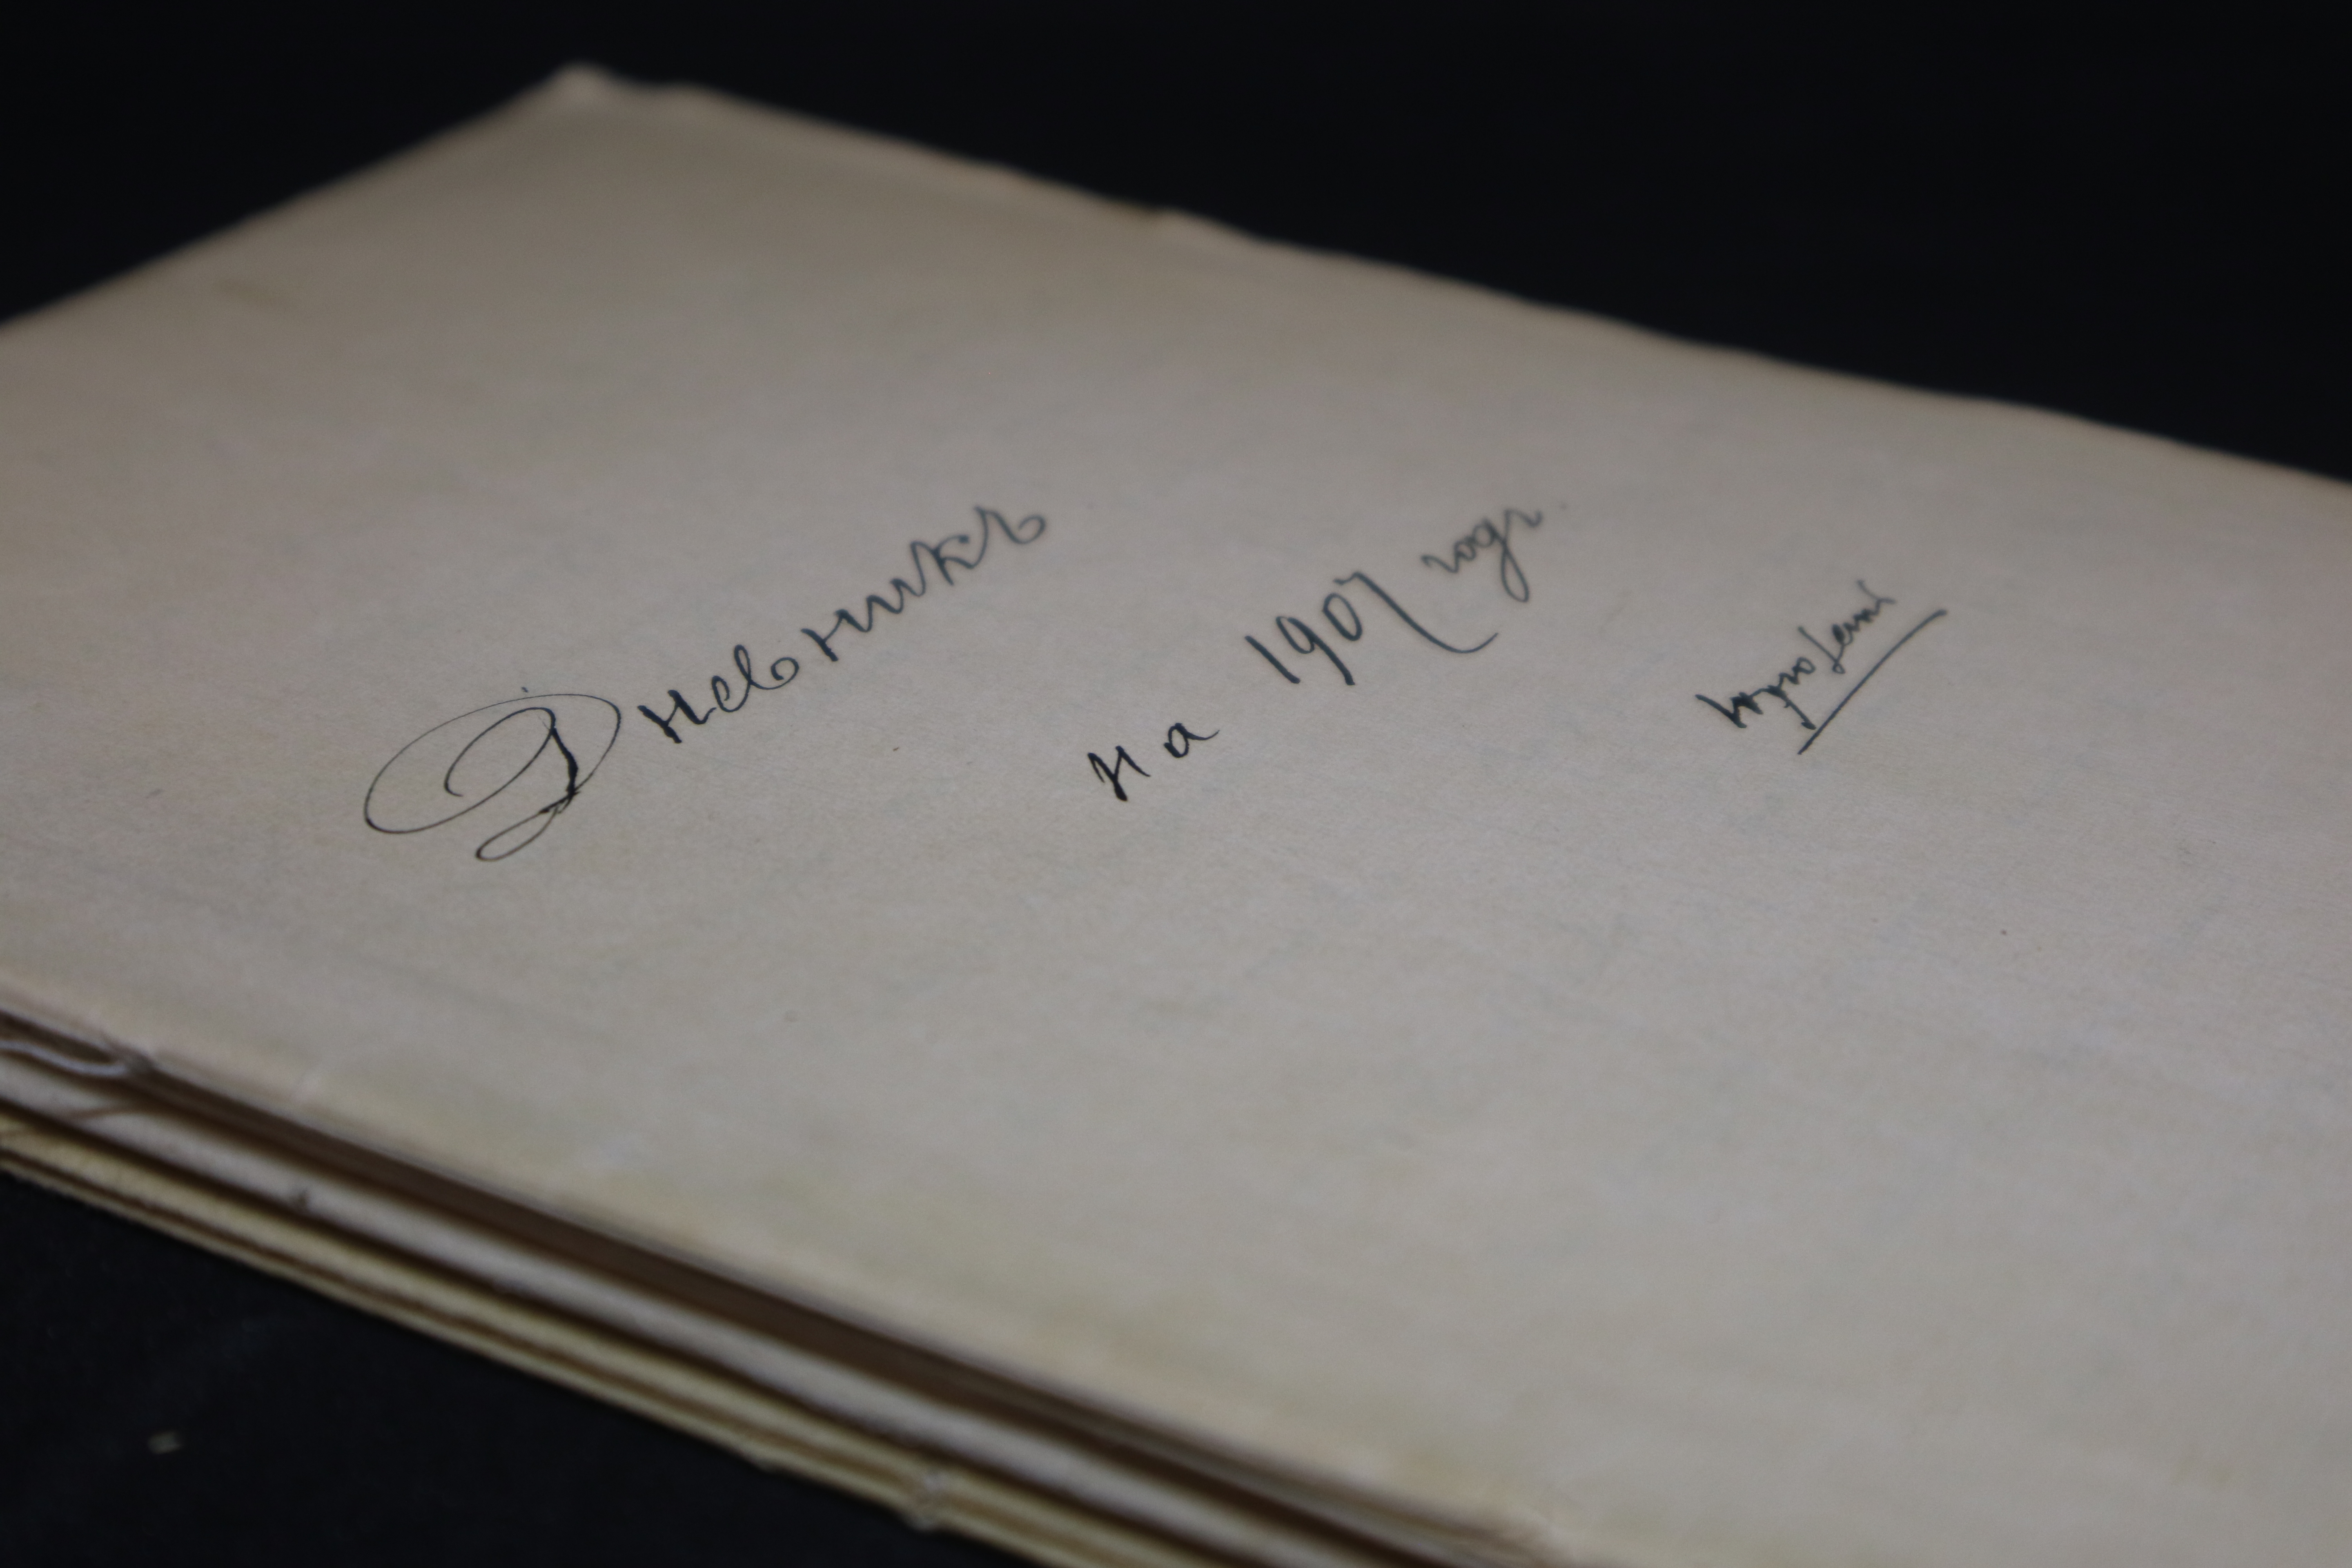 Дневникъ
на 1907 годъ